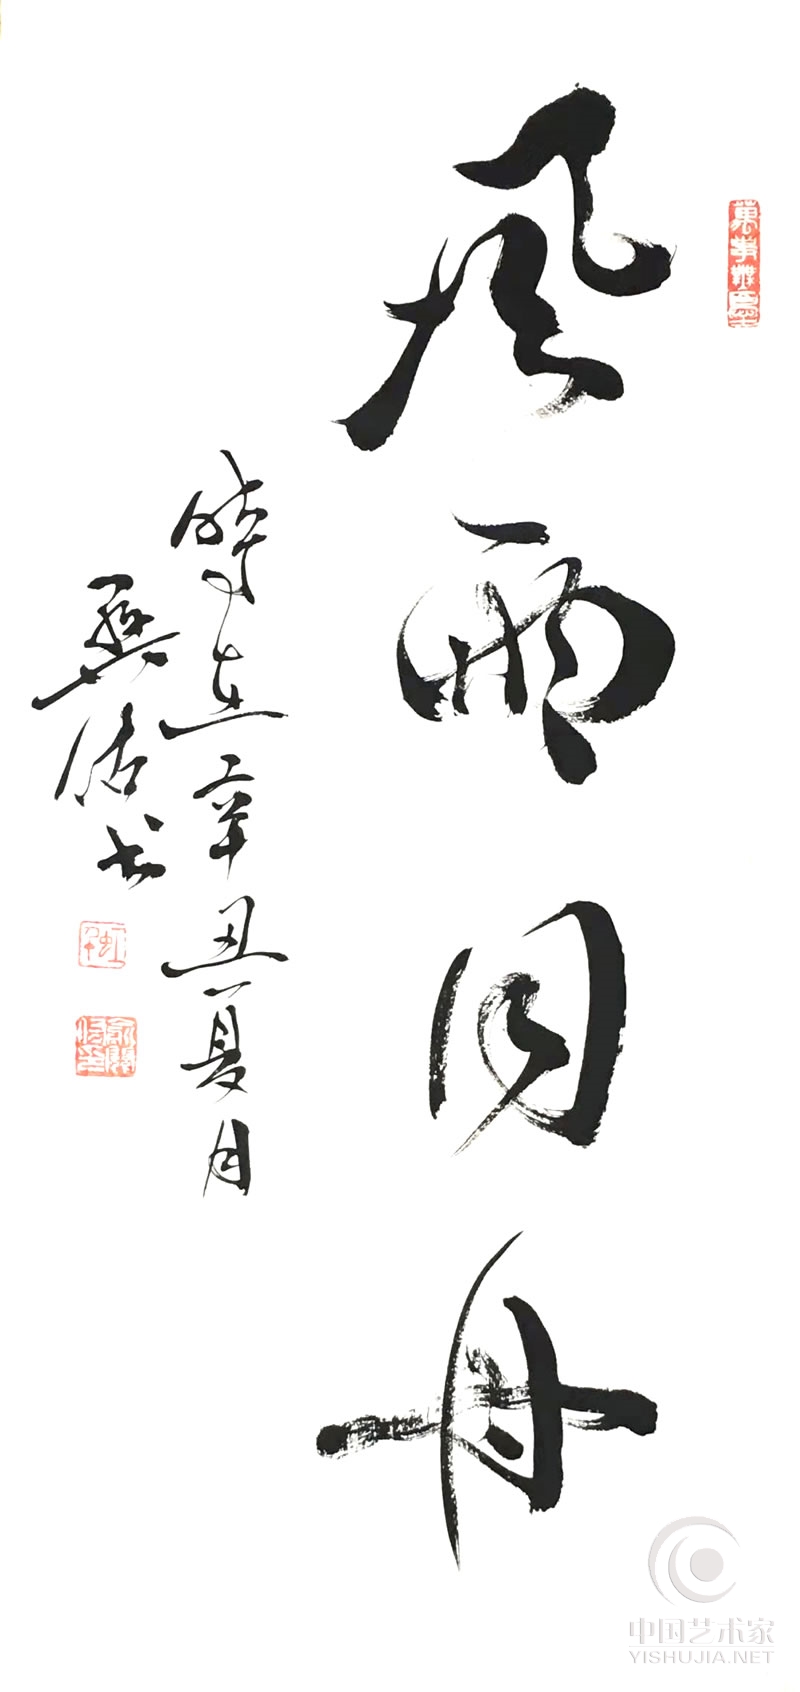 風雨同舟
時在辛丑夏月
書
中国艺术家
YISHUJIA.NET